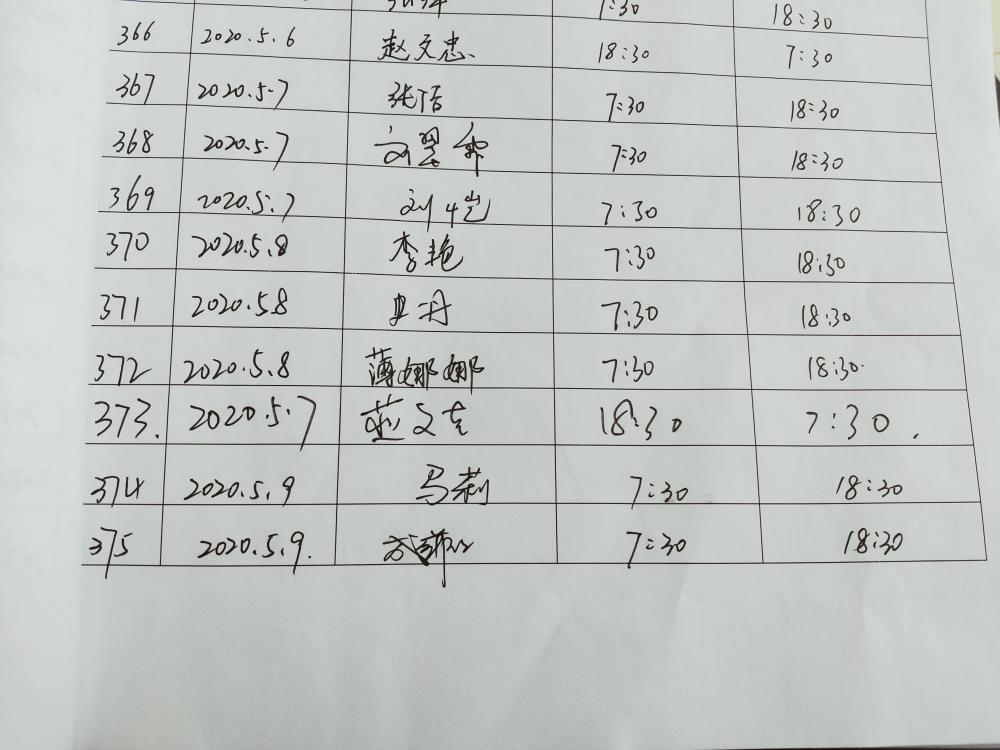 7:30 18:30
366 2020.5.6 赵文忠 18:30 7:30
367 2020.5.7 张洁 7:30 18:30
368 2020.5.7 7:30 18:30
369 2020.5.7 刘屹 7:30 18:30
370 2020.5.8 李艳 7:30 18:30
371 2020.5.8 7:30 18:30
372 2020.5.8 薄娜娜 7:30 18:30
373. 2020.5.7 18:30 7:30.
374 2020.5.9 马莉 7:30 18:30
375 2020.5.9. 7:30 18:30